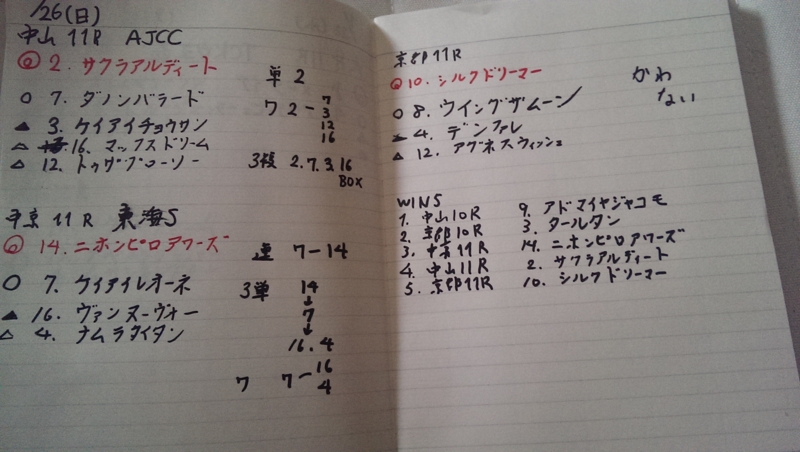 1/26(日)
中山 11R AJCC
◎ 2. サクラアルディート
○ 7. ダノンバラード
▲ 3. ケイアイチョウサン
△ 16. マックスドリーム
△ 12. トゥザグローリー
単 2
ワ 2－7
3
12
16
3複 2.7.3.16
BOX
中京 11R 東海S
◎ 14. ニホンピロアワーズ
○ 7. ケイアイレオーネ
▲ 16. ヴァンヌーヴォー
△ 4. ナムラタイタン
連 7－14
3単 14
↓
7
↓
16.4
ワ 7－16
4
京都 11R
◎ 10. シルクドリーマー
○ 8. ウイングザムーン
▲ 4. デンファレ
△ 12. アグネスウィッシュ
かわ
ない
WIN5
1. 中山10R 9. アドマイヤジャコモ
2. 京都10R 3. タールタン
3. 中京11R 14. ニホンピロアワーズ
4. 中山11R 2. サクラアルディート
5. 京都11R 10. シルクドリーマー